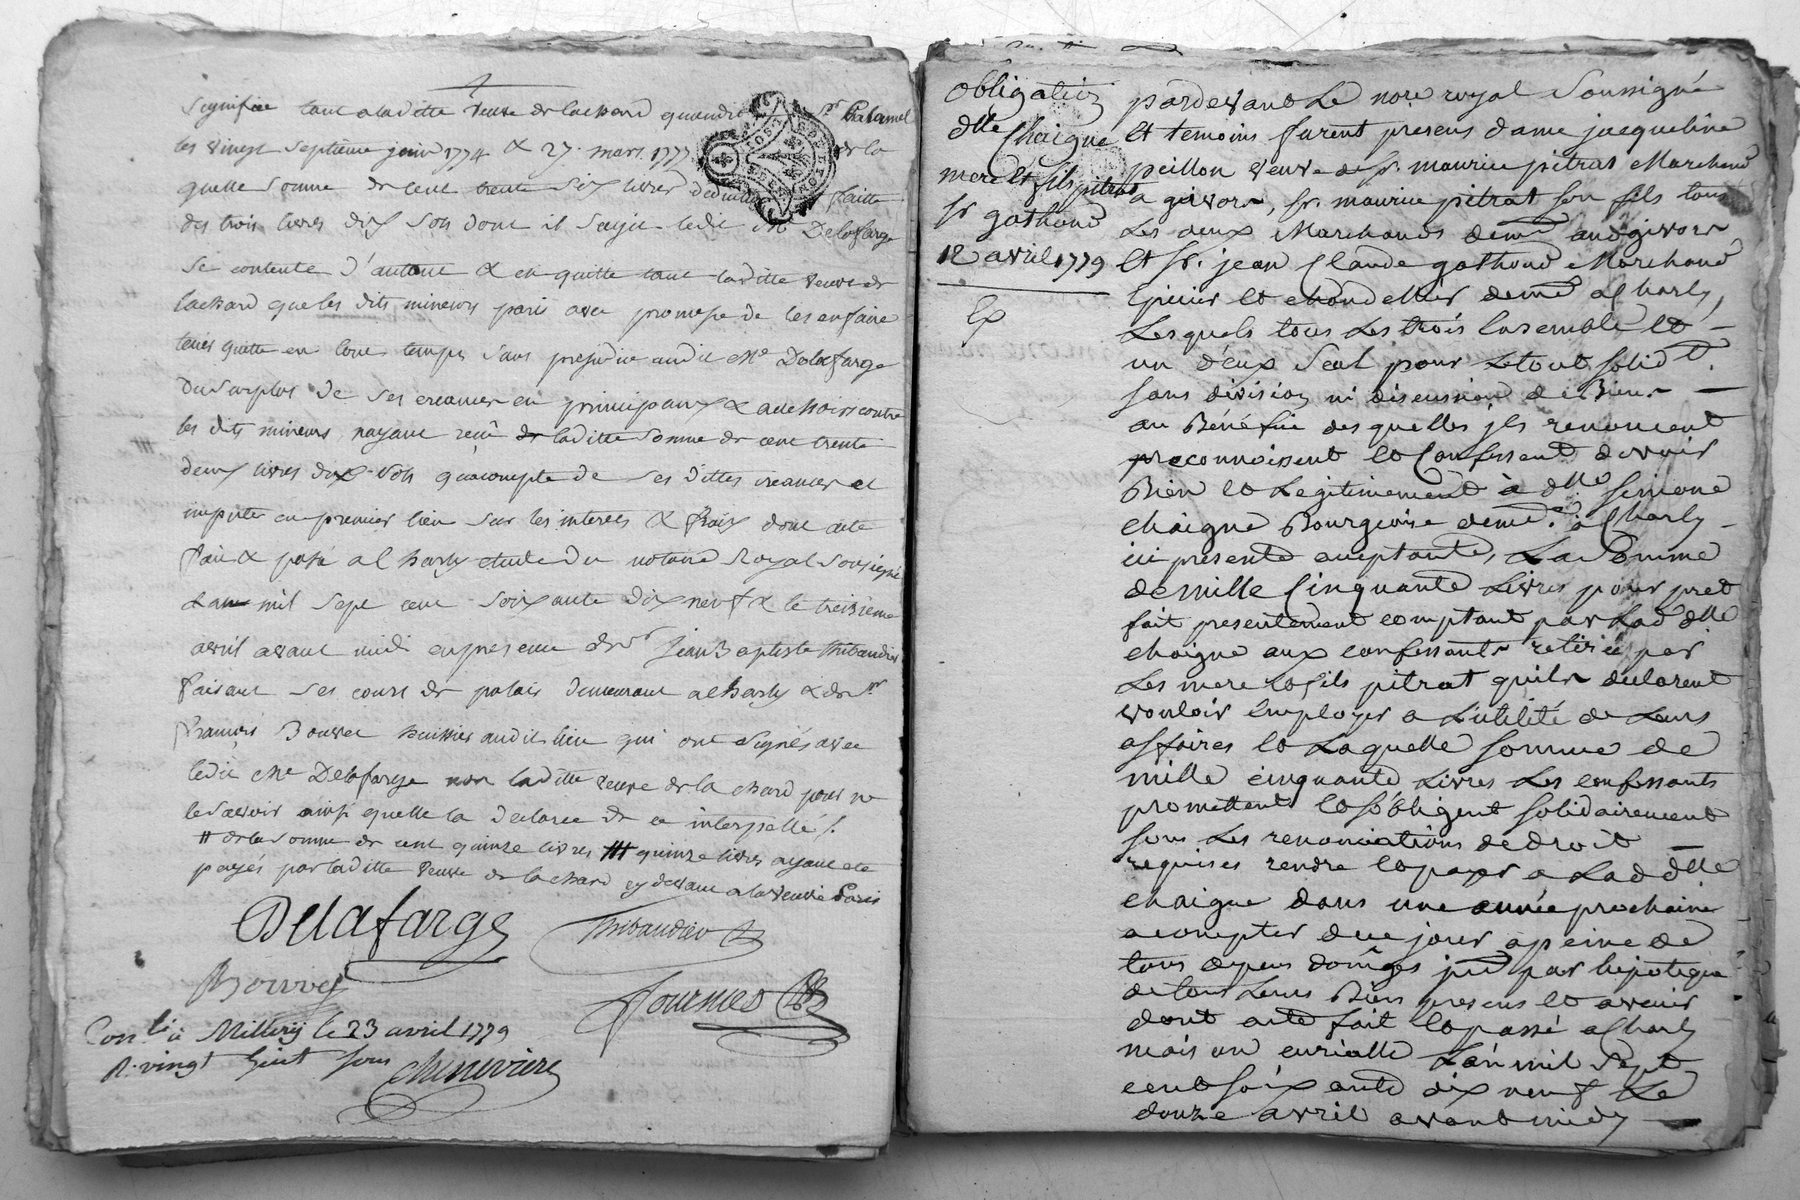 signifiée tant a laditte veuve de lachard quandit Sr Palamel
les vingt septieme juin 1774 & 27. mars 1777 de la
quelle somme de cent trente six livres deduction faitte
des trois livres dix sols dont il sagit ledit Me Delafarge
se contente d'autant & en quitte tant laditte veuve de
lachard que les dits mineurs paris avec promesse de les en faire
tenir quitte en tout temps sans prejudice audit Me Delafarge
du surplus de ses creances en principaux & accessoires contre
les dits mineurs, nayant recu de laditte somme de cent trente
deux livres dix sols qu'acompte de ses dittes creances et
imputer en premier lieu sur les interets & frais dont acte
fait & passé a Charly etude du notaire Royal soussigné
Lan mil sept cent soixante dix neuf & le treizieme
avril avant midi en presence de sr Jean Baptiste thibaudier
faisant ses cours de palais demeurant a Charly & de sr
françois Bouvee huissier audit lieu qui ont signés avec
ledit Me Delafarge non laditte veuve de lachard pour ne
le savoir ainsi quelle la declaré de ce interpellé /.
# de la somme de cent quinze livres ### quinze livres ayant eté
payés par laditte veuve de lachard cy devant a la veuve Paris
Delafarge Thibaudier
Bouvee
fournier
Conlé à Millery le 23 avril 1779
R. vingt huit sous
Chenevière
Obligation
dlle Chaigne
mere et fils pitrat
sr gathoud
12 avril 1779
Ex
pardevant Le nore royal Soussigné
Et temoins furent presens dame jacqueline
peillon veuve de sr. maurice pitrat Marchand
a givors, sr. maurice pitrat son fils tous
Les deux Marchands demt. aud givors
Et sr. jean Claude gathoud Marchand
Epicier et chandellier demt. a Charly,
Lesquels tous Les trois Ensemble et
un d'eux seul pour Le tout solidt.
sans division ni discussion de Biens
au Bénéfice desquelles ils renoncent
reconnoissent et Confessent devoir
Bien et Legitimement à dlle Simone
chaigne Bourgeoise demt. à Charly
ici presente acceptante, La Somme
de mille Cinquante Livres pour pret
fait presentement comptant par Lad dlle
chaigne aux confessants retirée par
Les mere et fils pitrat quils declarent
vouloir Employer a L'utilité de Leurs
affaires et Laquelle somme de
mille cinquante Livres Les confessants
promettent et s'obligent solidairement
sous Les renonciations de droit
requises rendre et payer a Lad dlle
chaigne dans une année prochaine
a compter de ce jour a peine de
tous depens domges jnt. par hipoteque
de tous Leurs Biens presens et avenir
dont acte fait et passé a Charly
mais on curialle L'an mil Sept
cent soixante dix neuf Le
douze avril avant midy